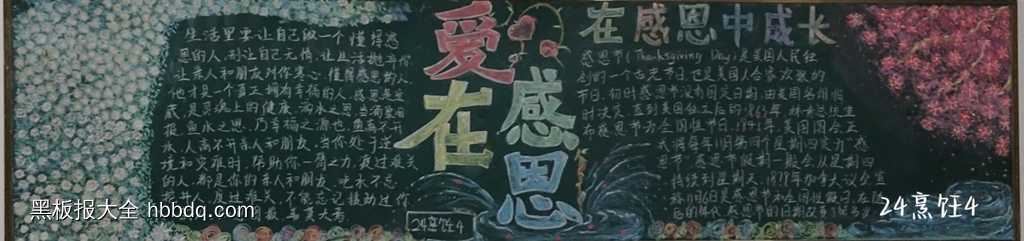 生活里要让自己做一个懂得感
恩的人,别让自己无情,让生活抛弃你
让亲人和朋友对你寒心,懂得感恩的人
他才是一个真正拥有幸福的人,感恩是
是灵魂上的健康,滴水之恩
报,鱼水之恩,乃幸福之源也,鱼离不开
水,人离不开亲人和朋友,当你处于逆
境和灾难时,帮助你一臂之力,
的人,都是你的亲人和朋友,吃水不忘
不能忘记接助过你
爱在感恩
在感恩中成长
感恩节(Thanksgiving Day)是美国人民独
创的一个古老节日,也是美国人合家欢聚的
节日,初时感恩节没有固定日期,由美国各州临
时决定,直到美国独立后的1863年,林肯总统宣
布感恩节为全国性节日,1941年,美国国会正
式将每年11月第四个星期四定为"感
恩节",感恩节假期一般会从星期四
持续到星期天,1879年加拿大议会宣
称11月6日是感恩节和全国性假日,在随
后的年代,感恩节的日期改变了多次
24烹饪4
黑板报大全 hbbdq.com
24烹饪4